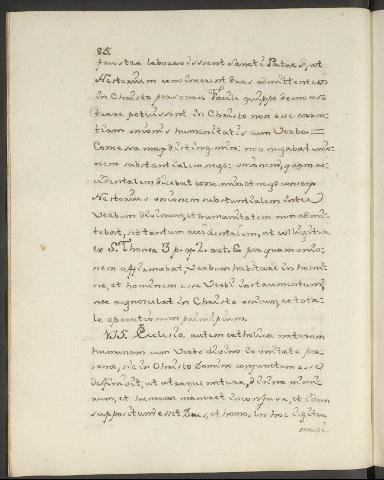 85.
frustra laborassissent Sancti Patres, ut
Nestorium convincerent duas admittentem
in Christo personas. Facile quippe demons-
trare potuissent in Christo non esse caren-
tiam unionis humanitatis cum Verbo=
Concessa maj distinguo min: non negabat unio-
nem substantialem nego: unionem, quam ac-
cidentalem dicebat conc. min: et nego conseq
Nestorius unionem substantialem inter
Verbum divinum, et humanitatem non admit-
tebat, sed tantum accidentalem, ut colligitur
ex S. Thoma 3 p. q. 2. art. 6 per quam unio-
nem affirmabat, Verbum habitare in homi-
ne, et hominem esse Verbi instrumentum,
nec agnoscebat in Christo unicum, ac tota-
le operationum principium.
Ecclesia autem catholica naturam
humanam cum Verbo divino in unitate per-
sonæ, sic in Christo Domino conjunctam esse
deffinivit, ut utraque natura, divina nimi-
rum, et humana maneret inconfusa, et idem
suppositum esset Deus, et homo. in hoc igitur